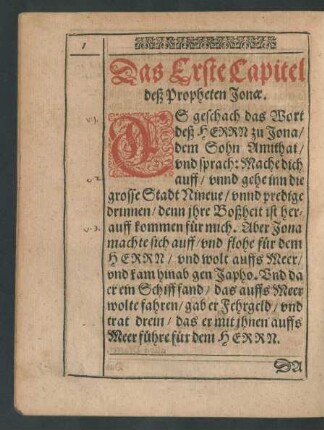 1
Das Erste Capitel
deß Propheten Jonæ.
v. 1.
ES geschach das Wort
deß HERRN zu Jona/
dem Sohn Amithai/
vnd sprach: Mache dich
v. 2.
auff/ vnnd gehe inn die
grosse Stadt Nineue/ vnnd predige
drinnen/ denn jhre Boßheit ist her-
v. 3.
auff kommen für mich. Aber Jona
machte sich auff/ vnd flohe für dem
HERRN/ vnd wolt auffs Meer/
vnd kam hinab gen Japho. Vnd da
er ein Schiff fand/ das auffs Meer
wolte fahren/ gab er Fehrgeld/ vnd
trat drein/ das er mit jhnen auffs
Meer führe für dem HERRN.
DA